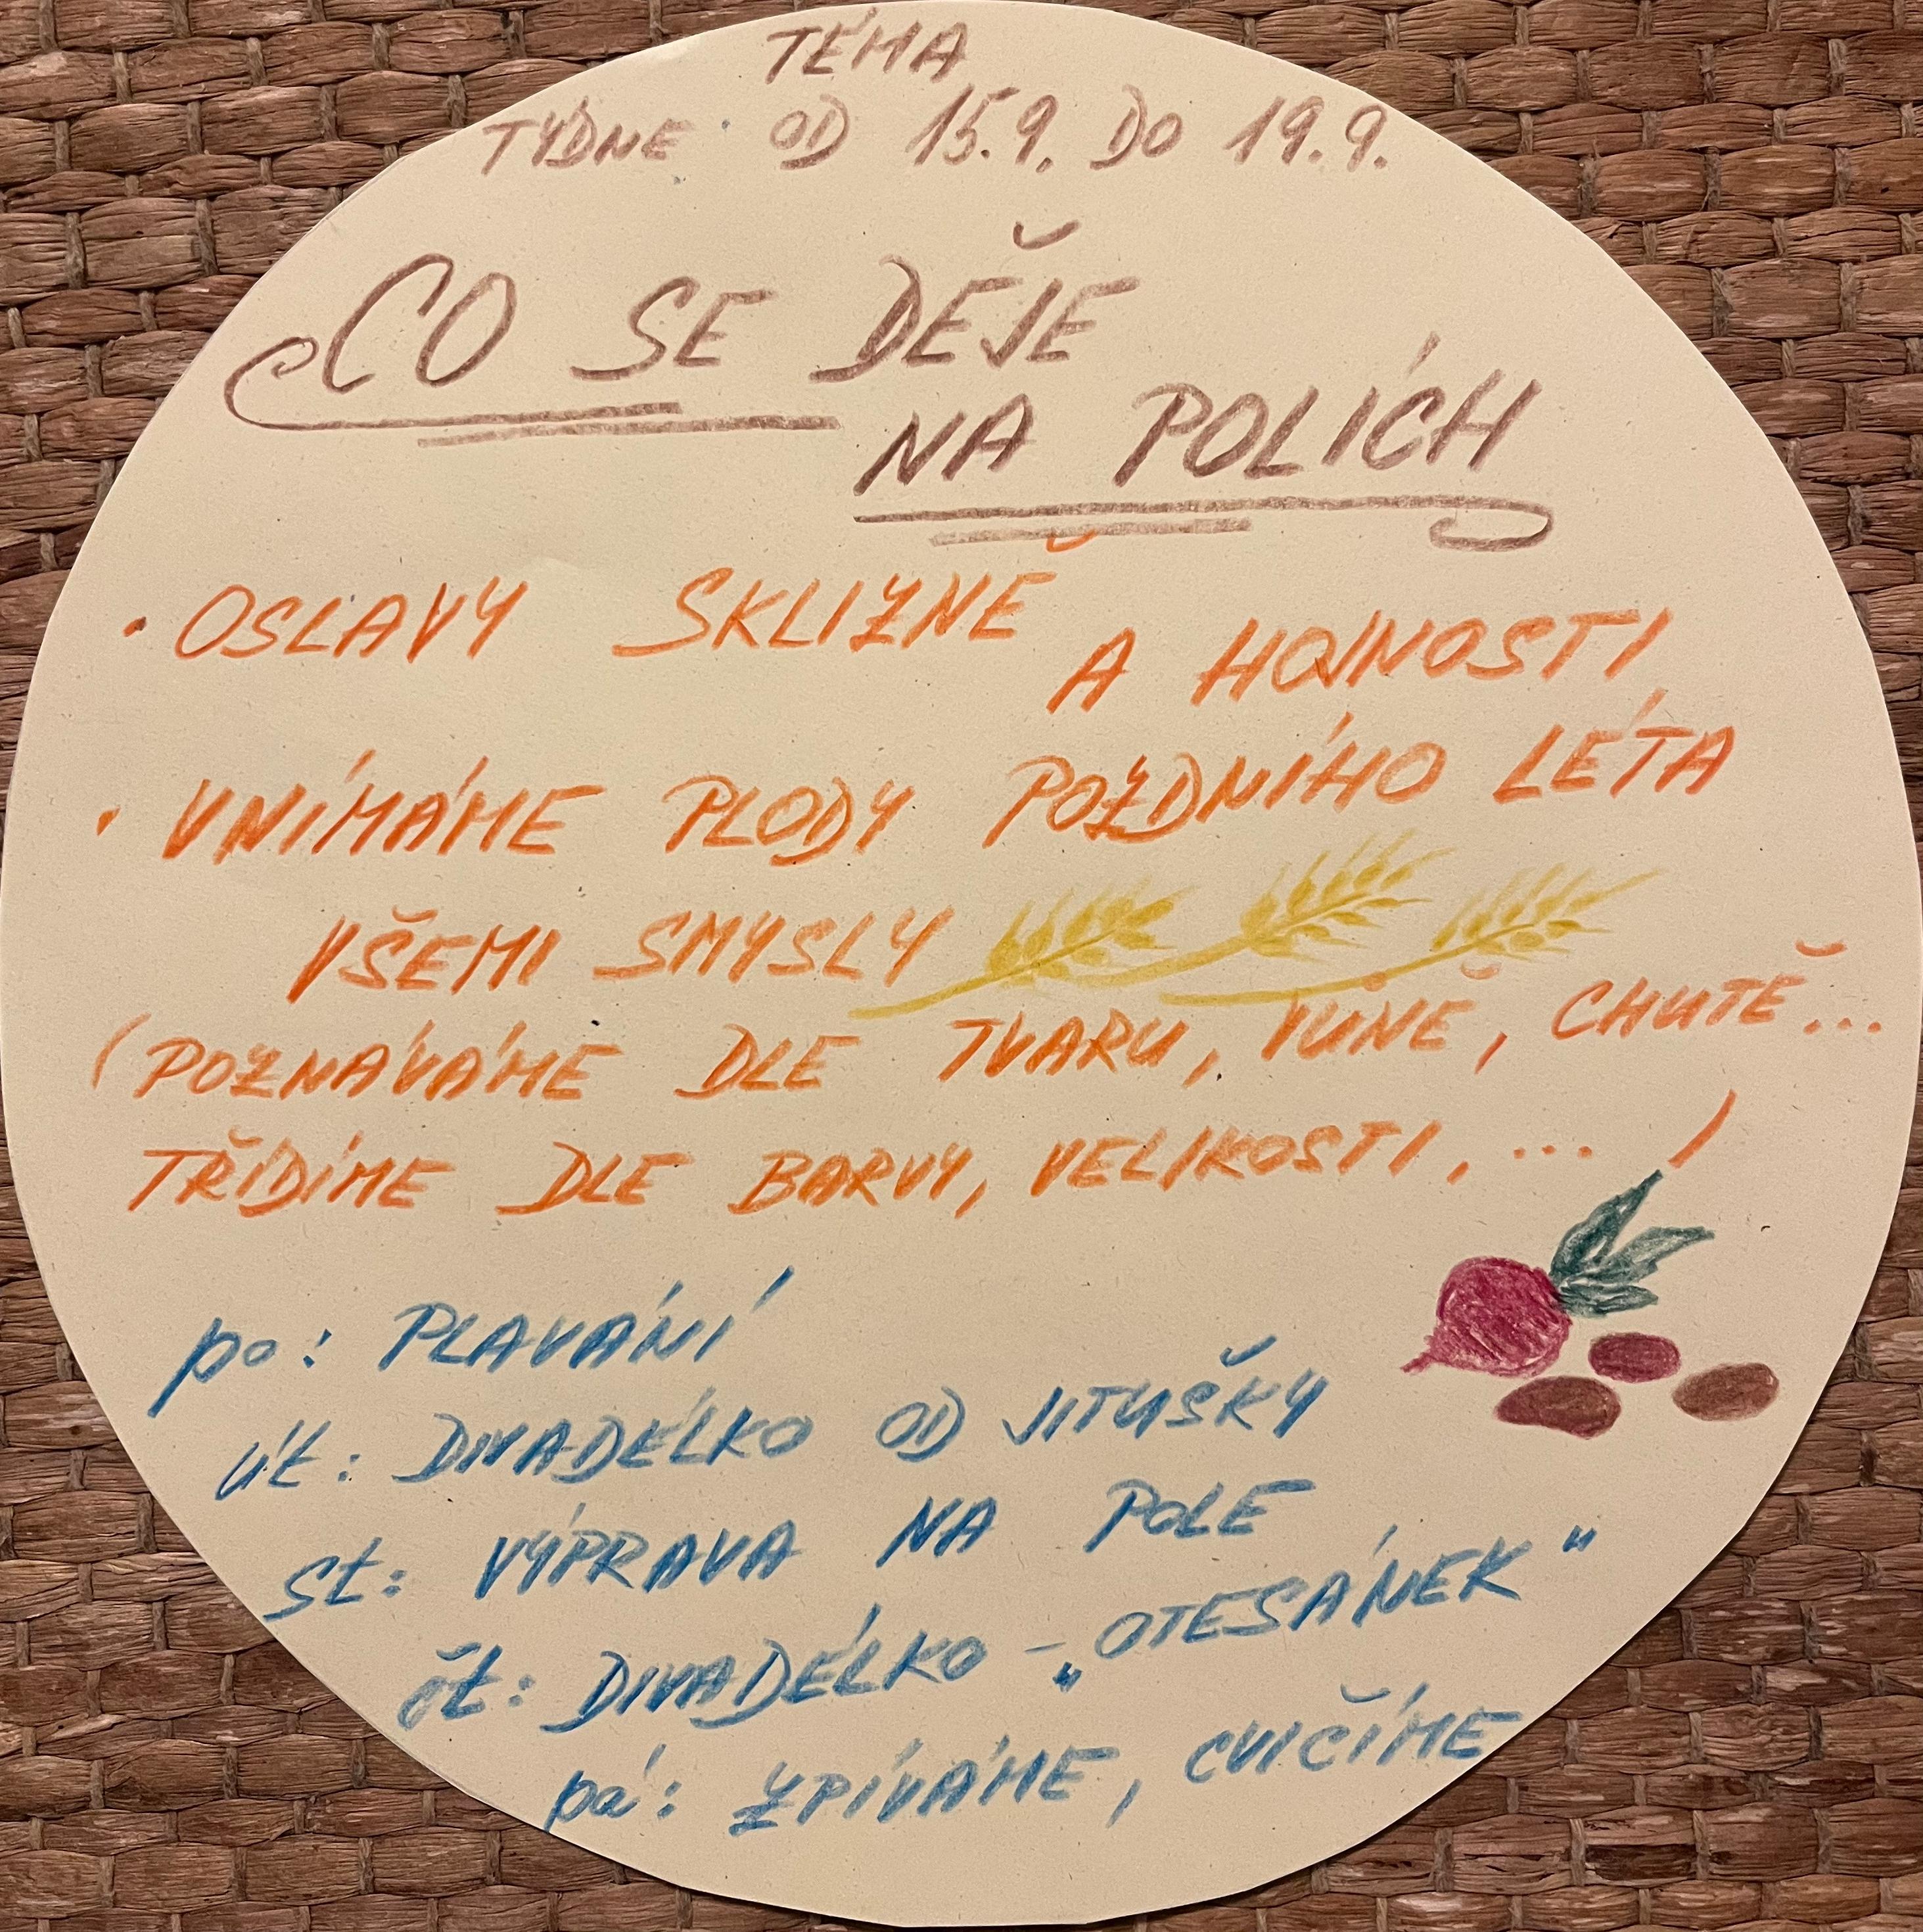 TÉMA
TÝDNE OD 15.9. DO 19.9.
CO SE DĚJE
NA POLÍCH
• OSLAVY SKLIZNĚ
A HOJNOSTI,
• VNÍMÁME PLODY POZDNÍHO LÉTA
VŠEMI SMYSLY
(POZNÁVÁME DLE TVARU, VŮNĚ, CHUTĚ...
TŘÍDÍME DLE BARVY, VELIKOSTI, ... )
po: PLAVÁNÍ
út: DIVADÉLKO OD JITUŠKY
st: VÝPRAVA NA POLE
čt: DIVADÉLKO – „OTESÁNEK"
pá: ZPÍVÁME, CVIČÍME